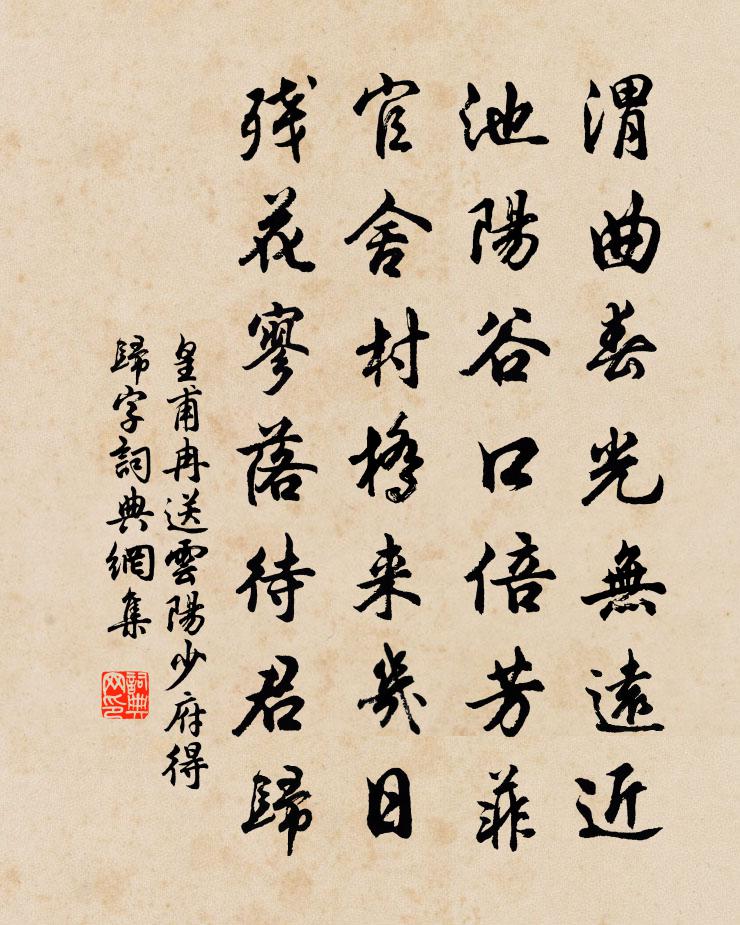 渭曲春光無遠近
池陽谷口倍芳菲
官舍村橋来幾日
殘花寥落待君歸
皇甫冉送雲陽少府得
歸字詞典網集
詞典
网印